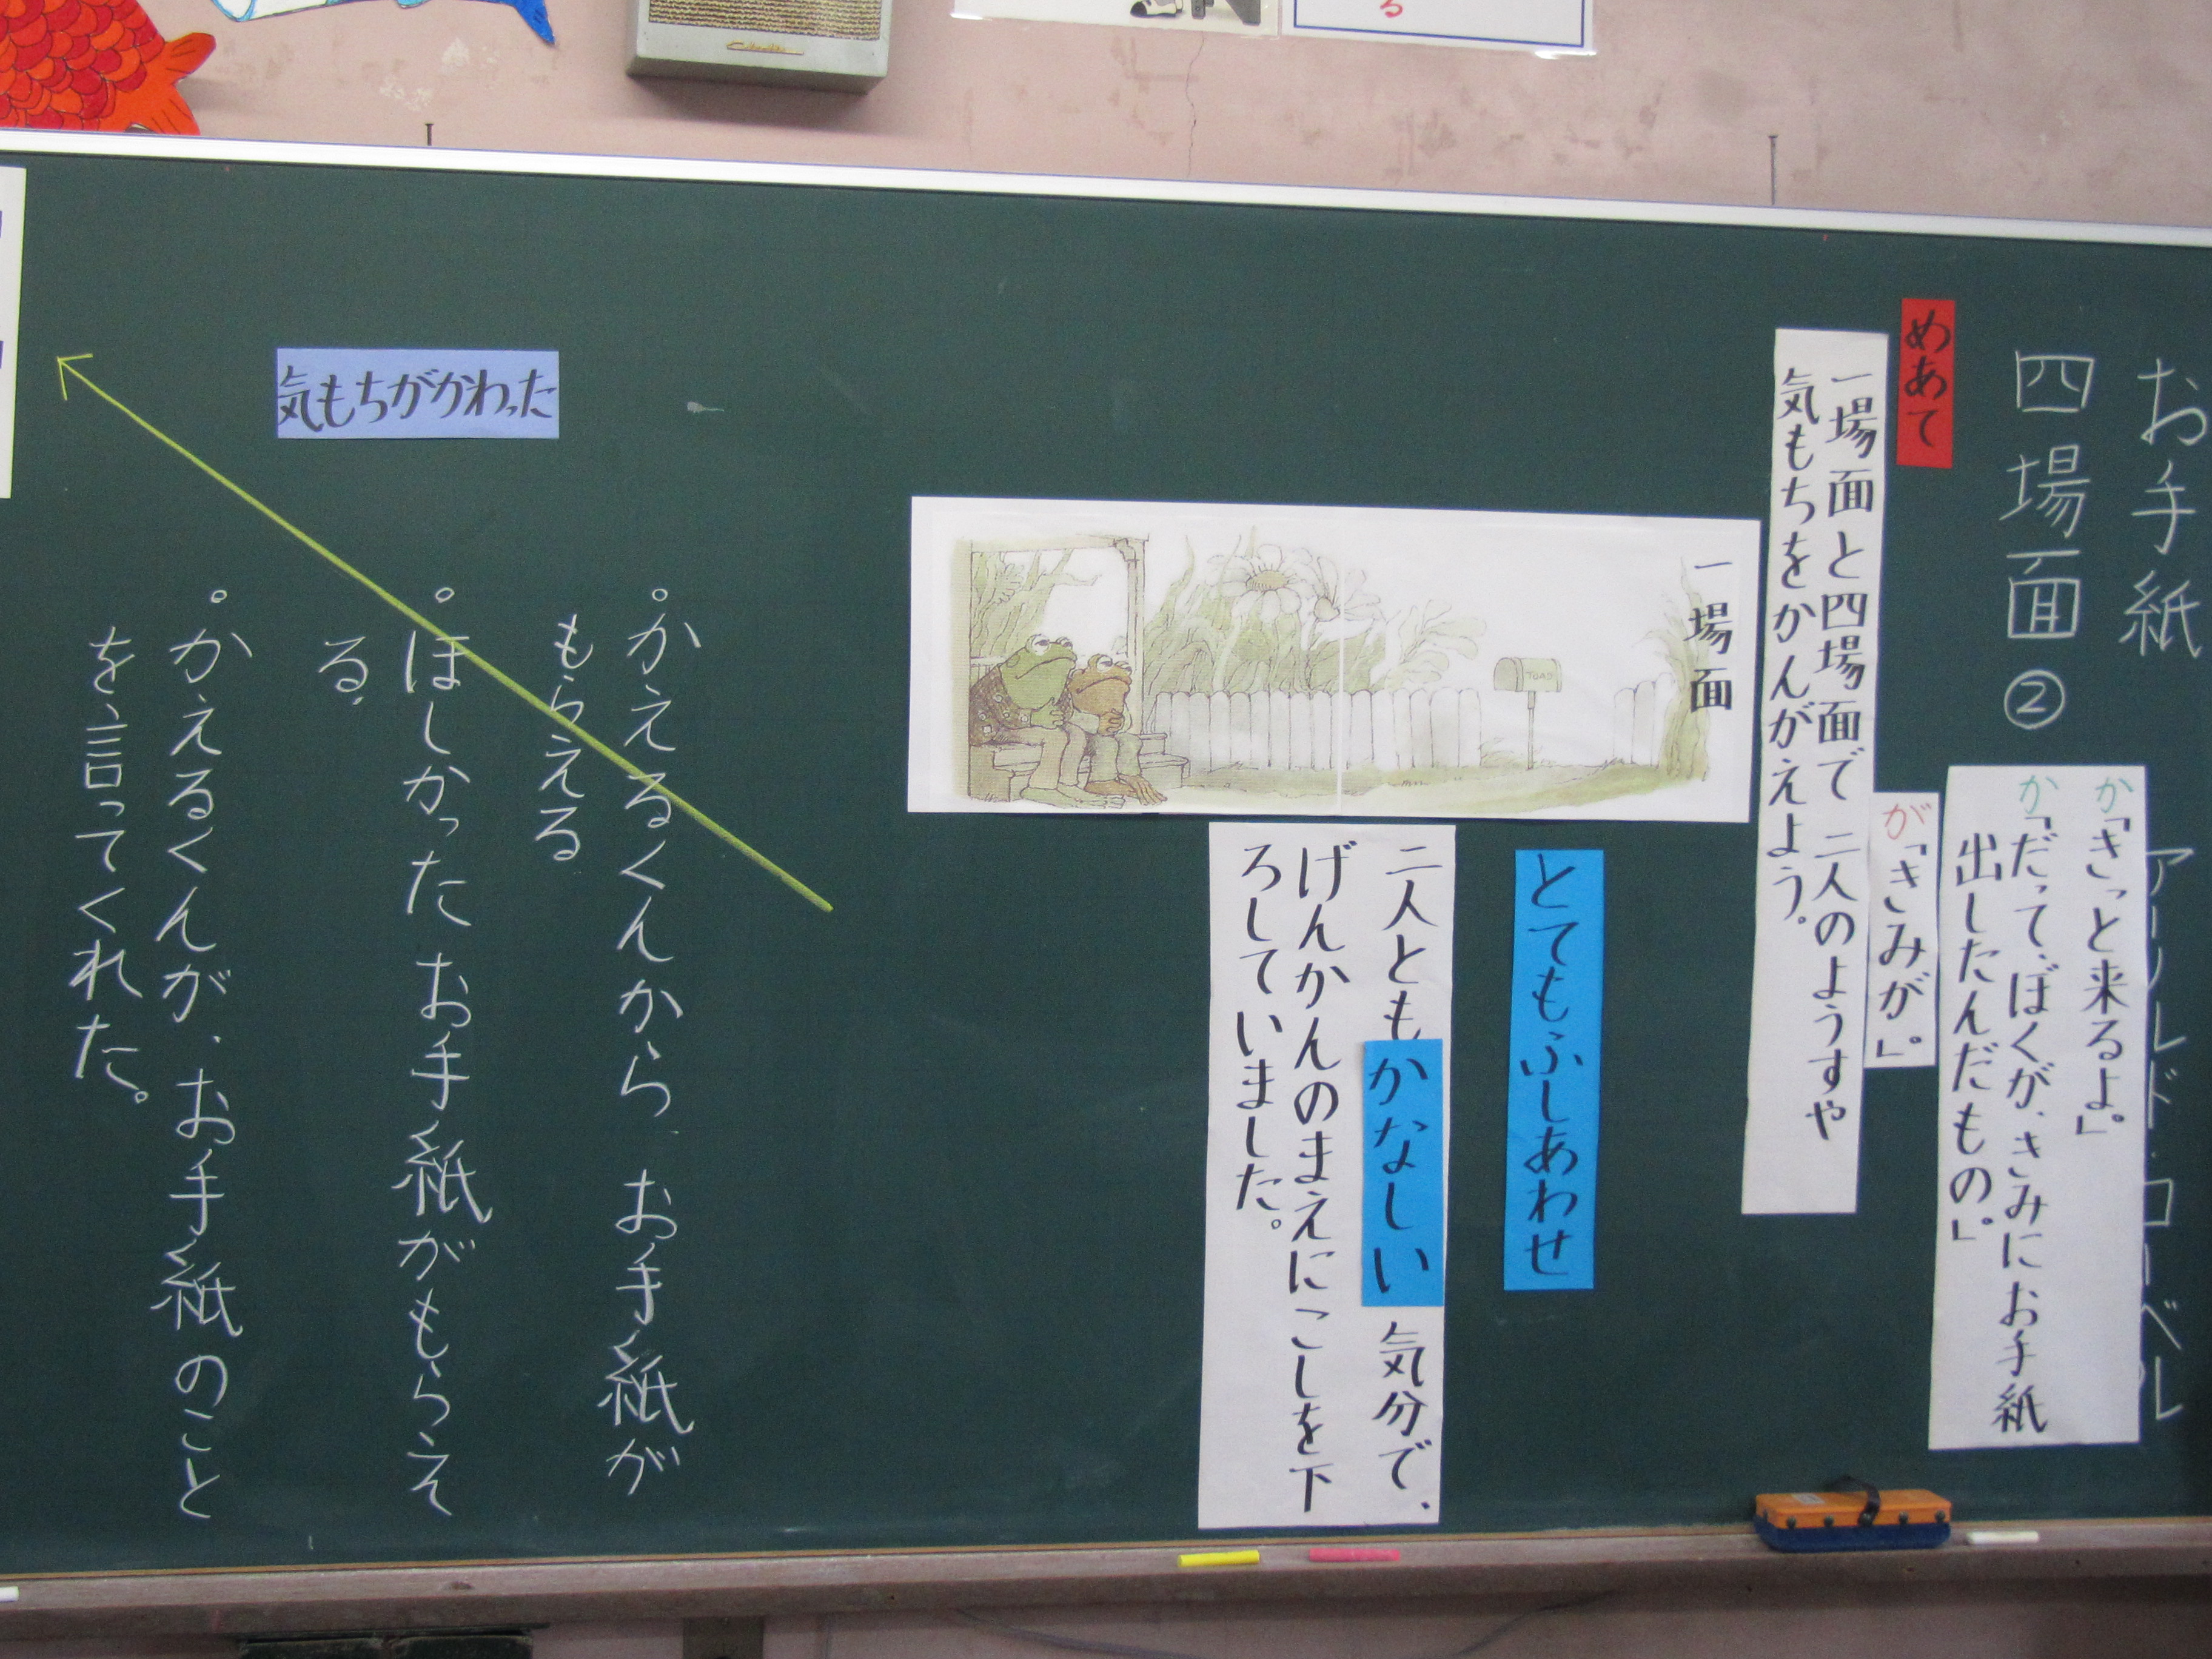 お手紙
アーノルド・ローベル
四場面②
か「きっと来るよ。」
か「だって、ぼくが、きみにお手紙
出したんだもの。」
が「きみが。」
めあて
一場面と四場面で二人のようすや
気もちをかんがえよう。
一場面
TOAD
とてもふしあわせ
二人ともかなしい気分で、
げんかんのまえにこしを下
ろしていました。
気もちがかわった
。かえるくんから、お手紙が
もらえる
。ほしかったお手紙がもらえそ
る。
。かえるくんが、お手紙のこと
を言ってくれた。
る